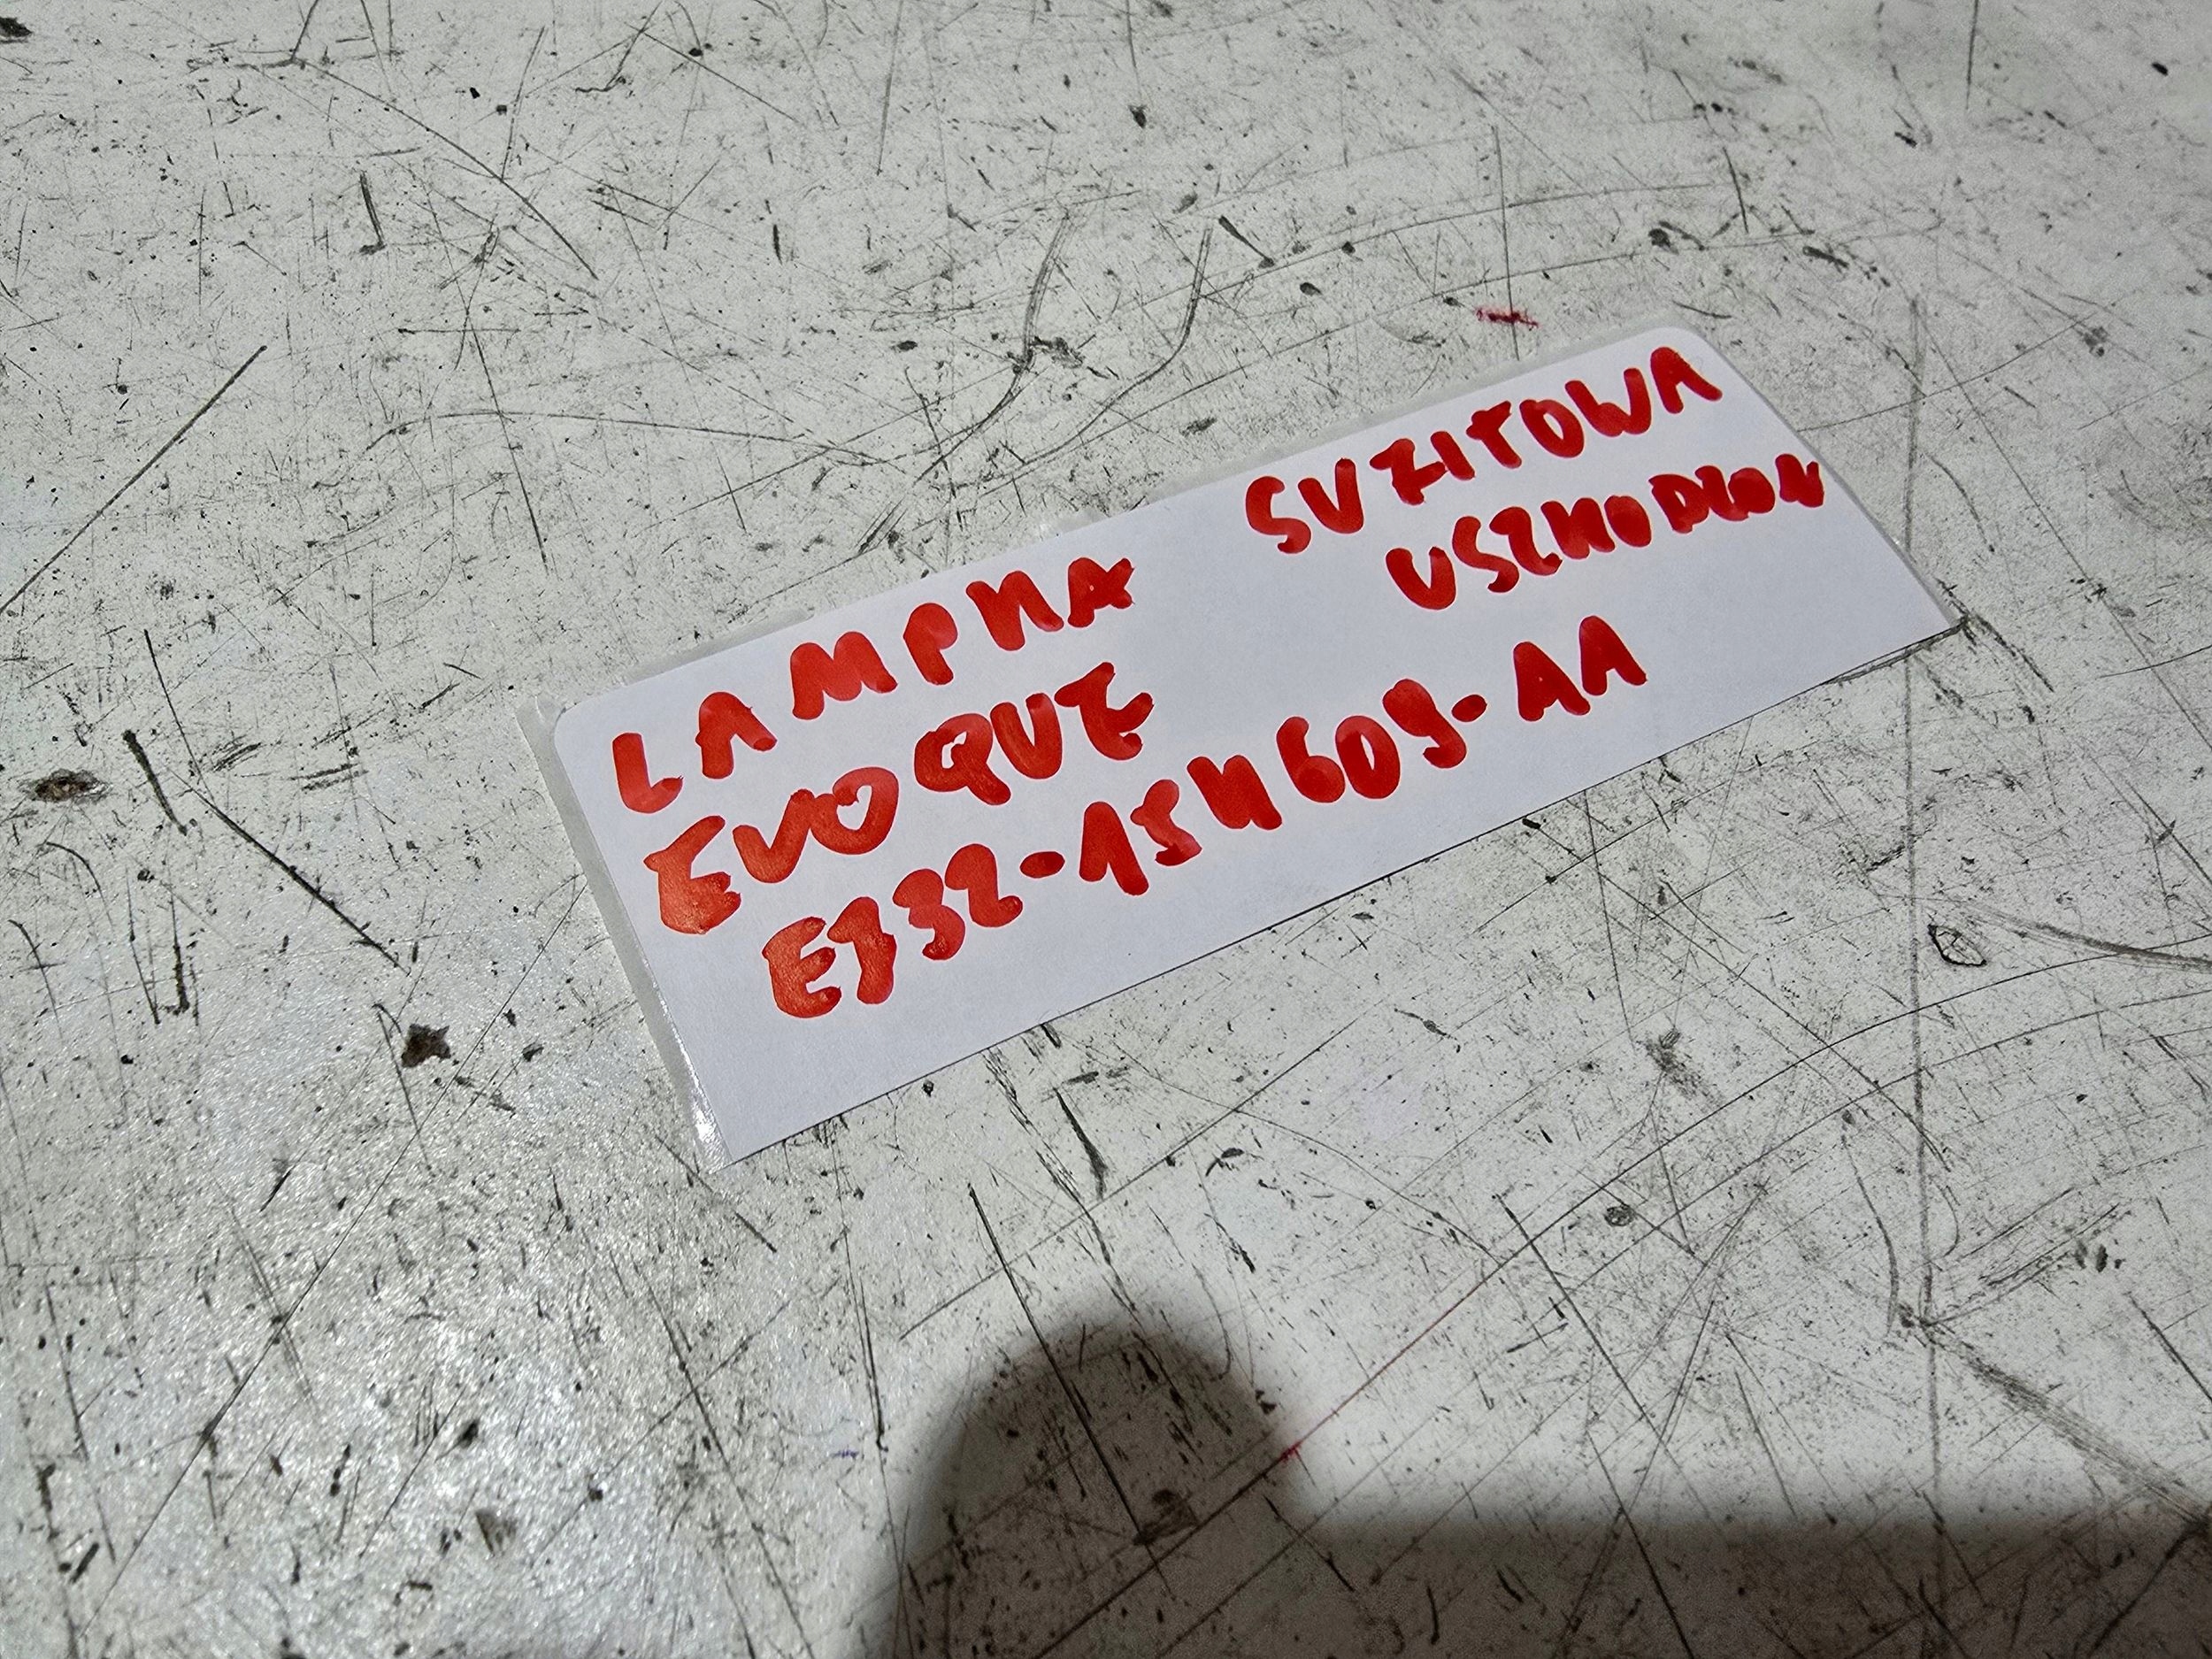 LAMPKA SUFITOWA
EVOQUE USZKODZON
EJ32-15K609-AA